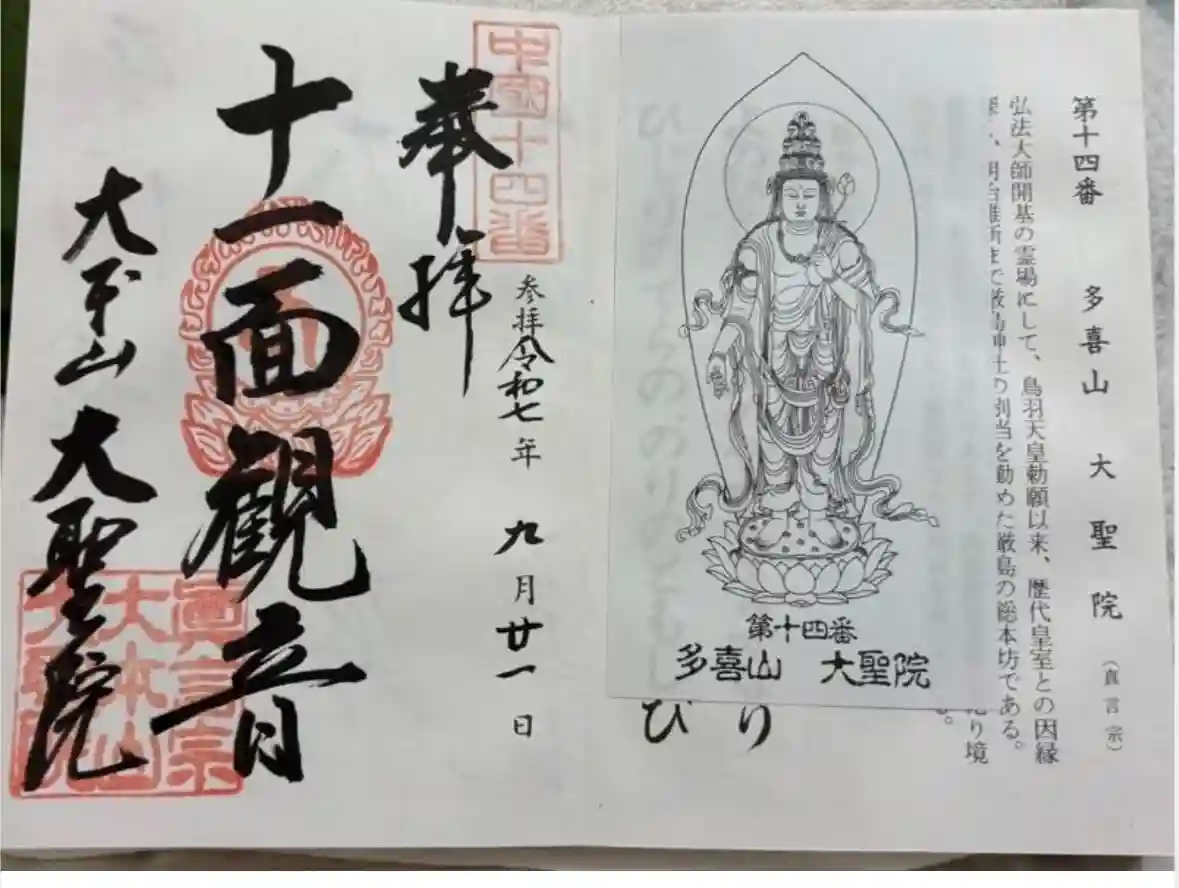 第十四番 多喜山 大聖院 (真言宗)
弘法大師開基の霊場にして、鳥羽天皇勅願以来、歴代皇室との因縁
明治維新まで厳島神社の別当を勤めた厳島の総本坊である。
り境
る。
第十四番
多喜山 大聖院
り
び
中国十四番
奉拝
参拝令和七年 九月廿一日
十一面観音
大本山大聖院
真言宗
大本山
大聖院